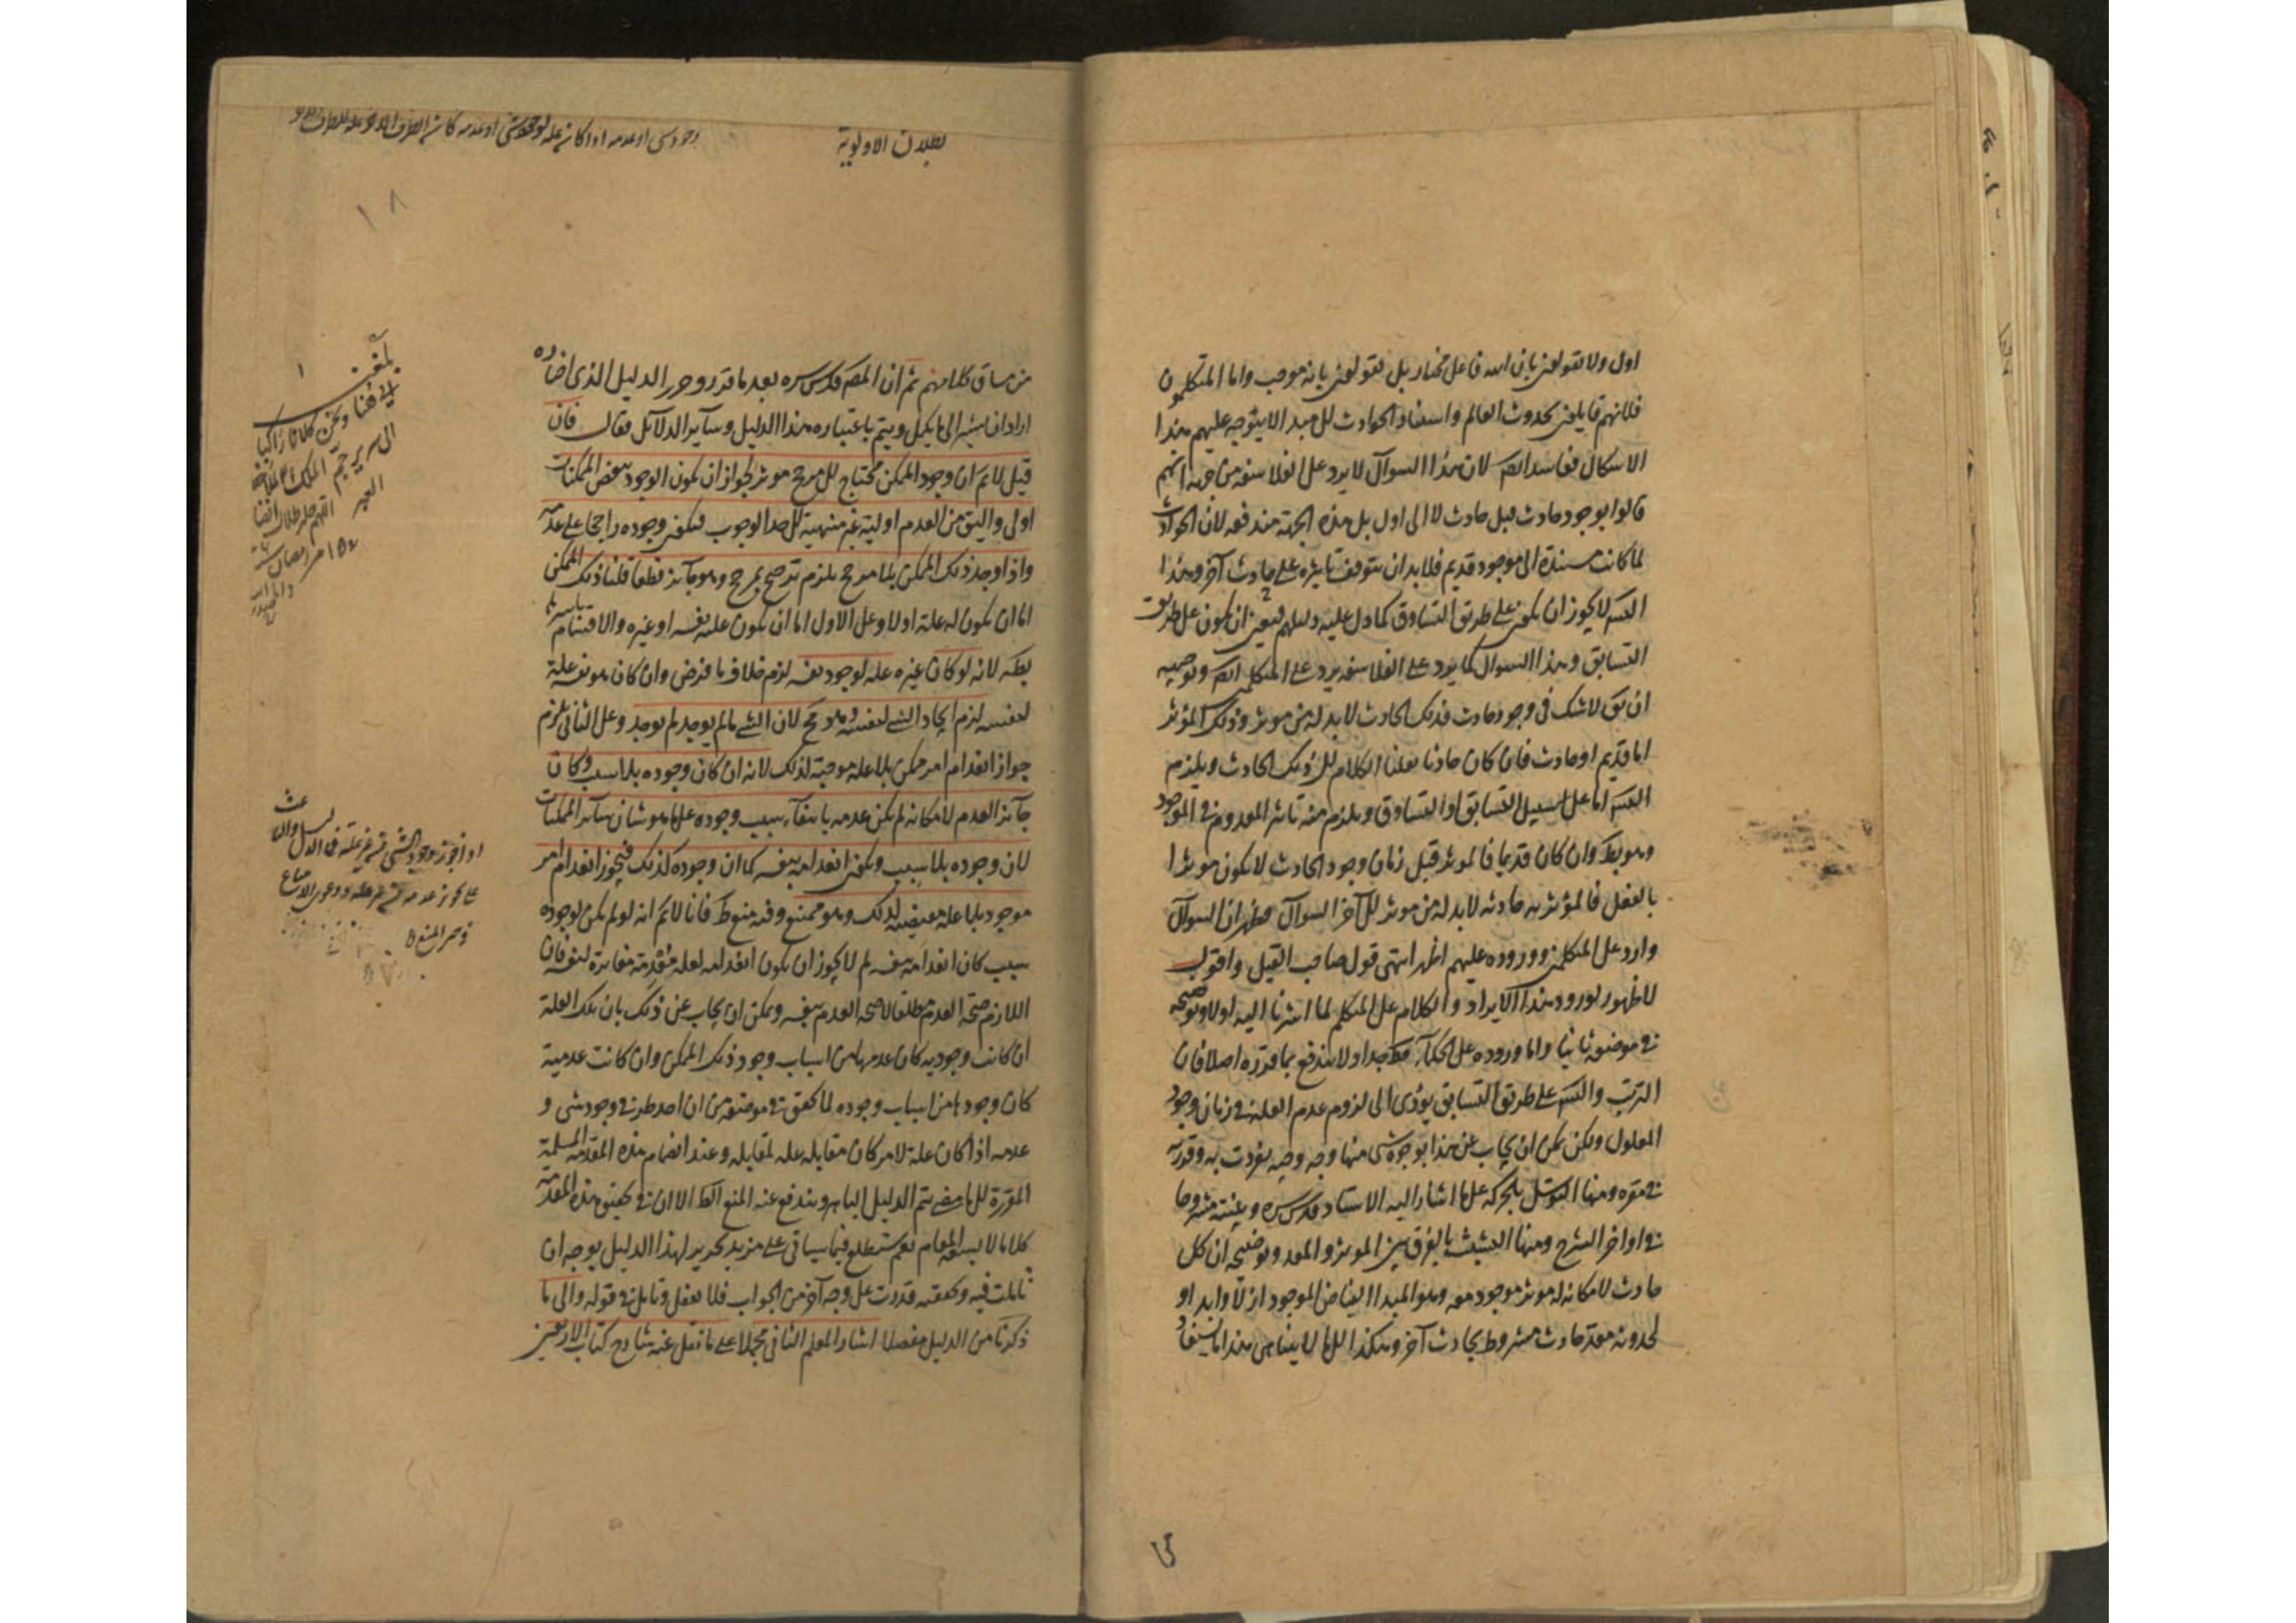 اول ولا يقولون بان الله فاعل مختار بل يقولون بانه موجب واما المتكلمون
فلانهم قايلون بحدوث العالم واستناد الحوادث للمبدا لا يتوجه عليهم هذا
الاشكال ففاسد ايضا لان هذا السوال لا يرد على الفلاسفه من جهه انهم
قالوا بوجود حادث قبل حادث لا الى اول بل هذه الجهة مندفعه لان الحوادث
لما كانت مستندة الى موجود قديم فلا بد ان يتوقف تاثيره على حادث آخر وهذا
التس لا يجوز ان يكون على طريق التساوق كما دل عليه دليلهم فتعين ان يكون على طريق
التسابق وهذا السوال كما يرد على الفلاسفه يرد على المتكلمين ايضا وتوجيهه
ان يق لا شك في وجود حادث فذلك الحادث لا بد له من موثر وذلك المؤثر
اما قديم او حادث فان كان حادثا نقلنا الكلام لل ذلك الحادث ويلزم
التس اما على سبيل التسابق او التساوق ويلزم منه تاثير المعدوم في الموجود
وهو بط وان كان قديما فالموثر قبل زمان وجود الحادث لا يكون موثرا
بالفعل فالمؤثريه حادثه لا بد له من موثر لل آخر السوال فظهر ان السوال
وارد على المتكلمين ووروده عليهم اظهر انتهى قول صاحب القيل واقول
لا ظهور لورود هذا الايراد والكلام على المتكلم لما اشرنا اليه اولا وتوضيحه
في موضعه ثانيا واما وروده على الحكمآء فظ جدا ولا يندفع بما قرره اصلا فان
الترتب والتس على طريق التسابق يؤدى الى لزوم عدم العلة في زمان وجود
المعلول ولكن يمكن ان يجاب عن هذا بوجوه شتى منها وجه وجيه تفردت به وقررته
في مقره ومنها التوسل بالحركه على ما اشار اليه الاستاد قدس سره وبينته مشروحا
في اواخر الشرح ومنها التشبث بالفرق بين الموثر والمعد وتوضيحه ان كل
حادث لامكانه له موثر موجود معه وهو المبدا الفياض الموجود ازلا وابدا و
لحدوثه معد حادث مشروط بحادث آخر وهكذا الى ما لا يتناهى هذا ما يستفاد
بطلان الاولوية
وجود شى او عدمه اذا كان علة لوجود شى او عدمه كان
١٨
من مساق كلامهم ثم ان المص قدس سره بعد ما قرر وحرر الدليل الذى اختاره
اراد ان يشير الى ما يكمل ويتم باعتباره هذا الدليل وساير الدلائل فقال فان
قيل لا نم ان وجود الممكن محتاج لل مرجح موثر لجواز ان يكون الوجود ببعض الممكنات
اولى واليق من العدم اولية غير منتهية لل حد الوجوب فيكون وجوده راجحا على عدمه
واذا وجد ذلك الممكن بلا مرجح يلزم ترجيح بمرجح وهو جائز قطعا قلنا ذلك الممكن
اما ان يكون له علة او لا وعلى الاول اما ان يكون علته نفسه او غيره والاقسام باسرها
بطه لانه لو كان غيره علة لوجود نفسه لزم خلاف ما فرض وان كان هو نفسه علة
لنفسه لزم ايجاد الشى لنفسه وهو مح لان الشى ما لم يوجد لم يوجد وعلى الثانى يلزم
جواز انعدام امر ممكن بلا علة موجبة لذلك لانه ان كان وجوده بلا سبب وكان
جآئز العدم لامكانه لم يكن عدمه بانتفآء سبب وجوده على ما هو شان ساير الممكنات
لان وجوده بلا سبب ويكون انعدامه بنفسه كما ان وجوده كذلك فيجوز انعدام امر
موجود بلا علة مقتضيه لذلك وهو ممتنع وفيه منع ظ فانا لا نم انه لو لم يكن لوجوده
سبب كان انعدامه بنفسه لم لا يجوز ان يكون انعدامه لعلة متقدمة مغايرة لنفسه فان
اللازم صحة العدم مطلقا لا صحة العدم بنفسه ويمكن ان يجاب عن ذلك بان تلك العلة
ان كانت وجوديه كان عدمها من اسباب وجود ذلك الممكن وان كانت عدمية
كان وجودها من اسباب وجوده لما تحقق في موضعه من ان احد طرفى وجود شى و
عدمه اذا كان علة لامر كان مقابله علة لمقابله وعند انضمام هذه المقدمة المسلمة
المقررة لل ما مضى يتم الدليل الباهر ويندفع عنه المنع الظ الا ان في تحقيق هذه المقدمة
كلاما لا يسعه المقام نعم ستطلع فيما سياتى على مزيد تحرير لهذا الدليل بوجه ان
تاملت فيه وتحققته قدرت على وجه آخر من الجواب فلا تغفل وتامل في قوله والى ما
ذكرنا من الدليل مفصلا اشار المعلم الثانى مجملا على ما نقل عنه شارح كتاب الاربعين
بلغت
الى هنا
اللهم
او اذا جوز وجود الشى